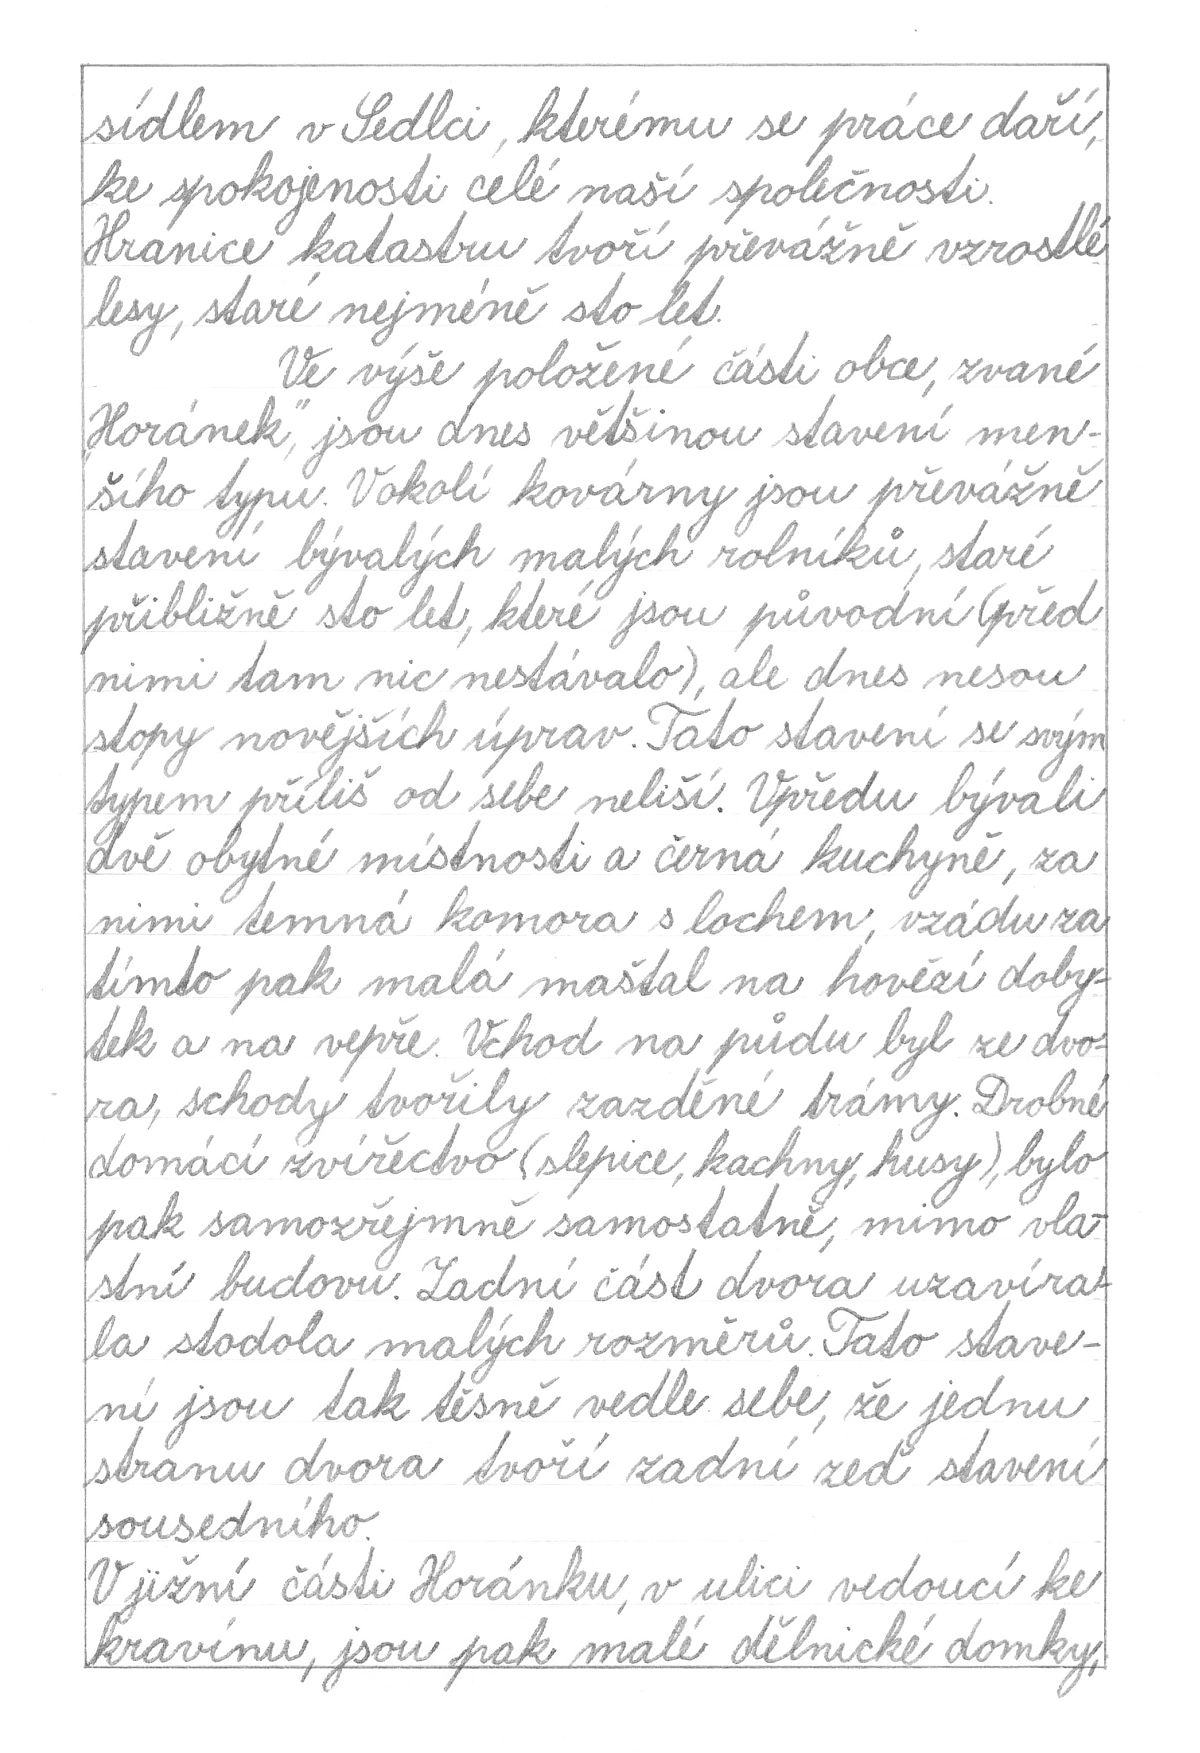 sídlem v Sedlci, kterému se práce daří,
ke spokojenosti celé naší společnosti.
Hranice katastru tvoří převážně vzrostlé
lesy, staré nejméně sto let.
Ve výše položené části obce, zvané
„Horánek", jsou dnes většinou stavení men-
šího typu. V okolí kovárny jsou převážně
stavení bývalých malých rolníků, staré
přibližně sto let, které jsou původní (před
nimi tam nic nestávalo), ale dnes nesou
stopy novějších úprav. Tato stavení se svým
typem příliš od sebe neliší. Vpředu bývali
dvě obytné místnosti a černá kuchyně, za
nimi temná komora s lochem, vzádu za
tímto pak malá maštal na hovězí doby-
tek a na vepře. Vchod na půdu byl ze dvo-
ra, schody tvořily zazděné trámy. Drobné
domácí zvířectvo (slepice, kachny, husy), bylo
pak samozřejmně samostatně, mimo vla-
stní budovu. Zadní část dvora uzavíra-
la stodola malých rozměrů. Tato stave-
ní jsou tak těsně vedle sebe, že jednu
stranu dvora tvoří zadní zeď stavení
sousedního.
V jižní části Horánku, v ulici vedoucí ke
kravínu, jsou pak malé dělnické domky,